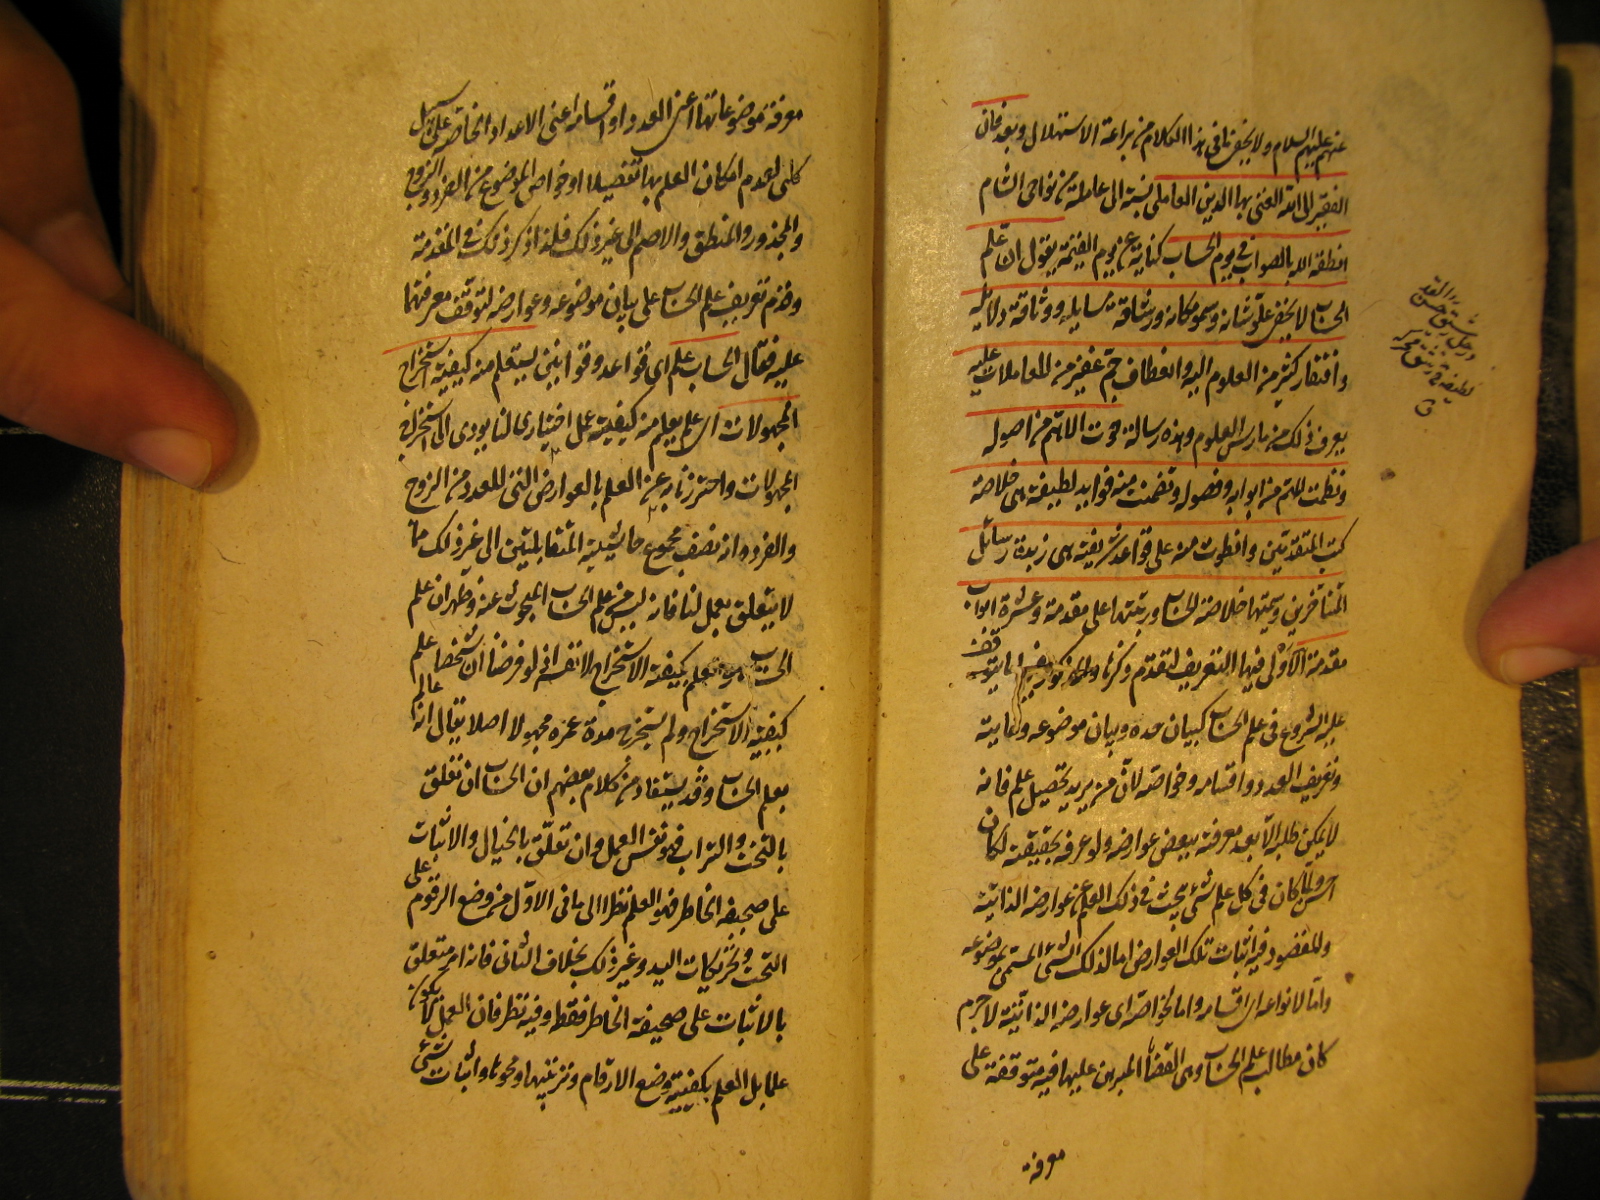 عنهم عليهم السلام ولا يخفى ما في هذا الكلام من براعة الاستهلال وبعد فان
الفقير الى الله الغنى بهاء الدين العاملى نسبة الى عاملة من نواحى الشام
انطقه الله بالصواب فى يوم الحساب كناية عن يوم القيمة يقول ان علم
الحساب لا يخفى علو شانه وسمو مكانه ورشاقة مسايله ووثاقة دلايله
وافتقار كثير من العلوم اليه وانعطاف جم غفير من المعاملات عليه
يعرف ذلك من مارس العلوم وهذه رسالة حوت الاهم من اصوله
ونظمت المهم من ابوابه وفصوله وتضمنت منه فوايد لطيفة هى خلاصة
كتب المتقدمين وانطوت منه على قواعد شريفة هى زبدة رسائل
المتأخرين وسميتها خلاصة الحساب ورتبتها على مقدمة وعشرة ابواب
مقدمة الاولى فيها التعريف لتقدم ذكرها والمذكور فيها ما يتوقف
عليه الشروع فى علم الحساب كبيان حده وبيان موضوعه وغايته
وتعريف العدد واقسامه وخواصه لان من يريد تحصيل علم فانه
لا يمكن طلبه الا بعد معرفته ببعض عوارضه ولو عرفه بحقيقته لكان
احسن ولما كان فى كل علم شئ يبحث فى ذلك العلم عن عوارضه الذاتية
والمقصود فيه اثبات تلك العوارض اما لذلك الشئ المسمى بموضوعه
واما لانواعه اى اقسامه واما لخواصه اى عوارضه الذاتية لا جرم
كان مطالب علم الحساب وهى القضايا المبرهن عليها فيه متوقفة على
معرفة
معرفة موضوعاتها اعنى العدد او اقسامه اعنى الاعداد الخاصة على سبيل
كلى لعدم امكان العلم بها تفصيلا او خواص الموضوع من الفرد والزوج
والمجذور والمنطق والاصم الى غير ذلك فلذا ذكر ذلك فى المقدمة
وقدم تعريف علم الحساب على بيان موضوعه وعوارضه لتوقف معرفتهما
عليه فقال الحساب علم اى قواعد وقوانين يستعلم منه كيفية استخراج
المجهولات اى علم يعلم منه كيفية عمل اختيارى لنا يودى الى استخراج
المجهولات واحترز به عن العلم بالعوارض التى للعدد من الزوج
والفرد وانه نصف مجموع حاشيتيه المتقابلتين الى غير ذلك مما
لا يتعلق بعمل لنا فانه ليس من علم الحساب المبحوث عنه وظهر ان علم
الحساب هو تعلم كيفية الاستخراج لا نفسه اذ لو فرضنا ان شخصا علم
كيفية الاستخراج ولم يستخرج مدة عمره مجهولا اصلا يقال انه عالم
بعلم الحساب وقد يستفاد من كلام بعضهم ان الحساب ان تعلق
بالتخت والتراب فهو نفس العمل وان تعلق بالخيال والاثبات
على صحيفة الخاطر فهو العلم نظرا الى ما فى الاول من وضع الرقوم على
التخت وتحريكات اليد وغير ذلك بخلاف الثانى فانه امر متعلق
بالاثبات على صحيفة الخاطر فقط وفيه نظر فان العمل لا يكون
علما بل العلم بكيفية وضع الارقام وترتيبها ومحوها واثبات شئ